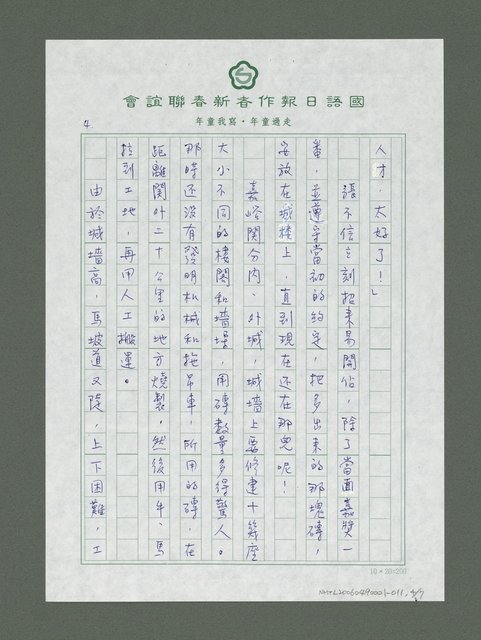 國語日報作者新春聯誼會
走過童年・寫我童年
4
人才，太好了！」
張不信立刻招來易開佔，除了當面嘉獎一
番，並遵守當初的約定，把多出來的那塊磚，
安放在城樓上，直到現在還在那兒呢！
嘉峪關分內、外城，城墻上要修建十幾座
大小不同的樓閣和墻堞，用磚數量多得驚人。
那時还沒有發明机械和拖吊車，所用的磚，在
距離關外二十公里的地方燒製，然後用牛、馬
拉到工地，再用人工搬運。
由於城墻高，馬坡道又陡，上下困難，工
10×20=200
NMTL20060490001-011, 4/7